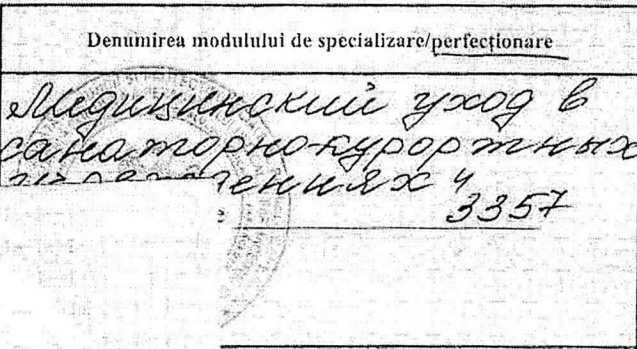 Denumirea modulului de specializare/perfecționare
Медицинский уход в
санаторно-курортных
3357